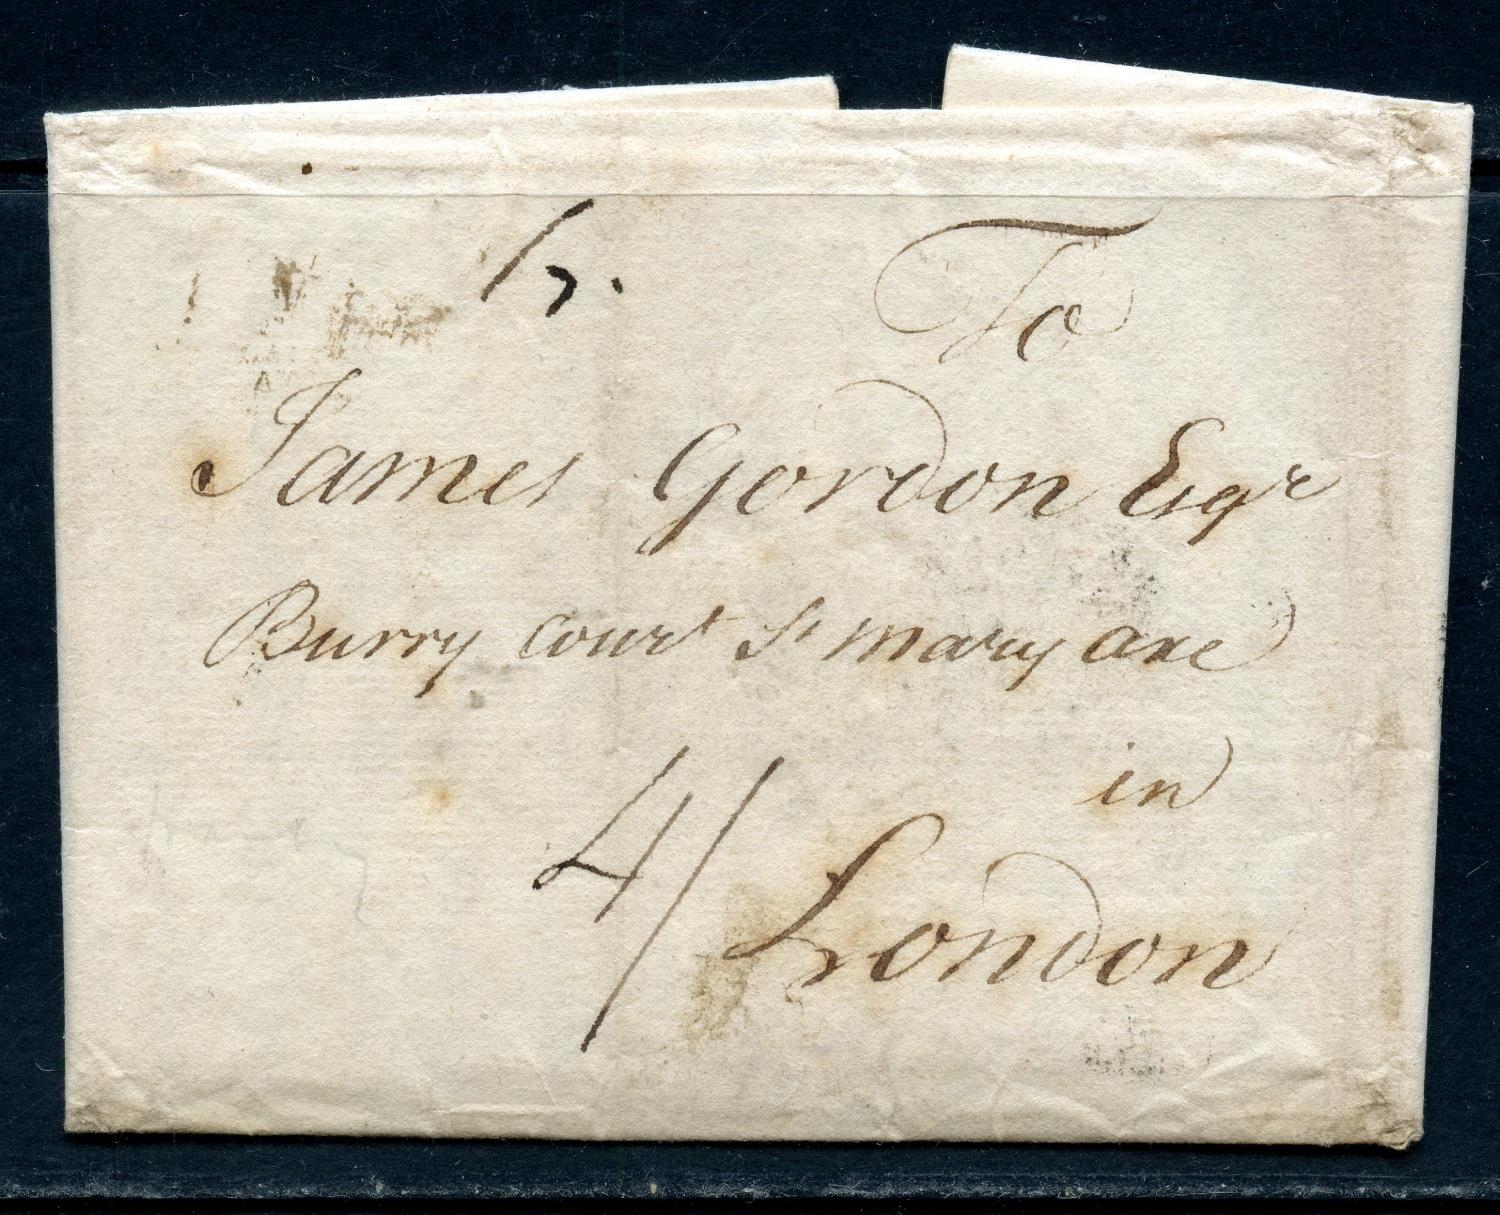 To
James Gordon Esqr
Burry Court St Mary axe
in
London
4/